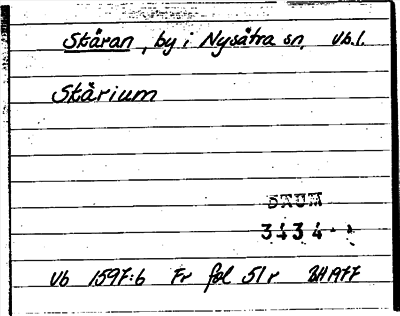 Skåran, by i Nysätra sn, Vb.l.
Skårium
DAUM
3434
Vb 1597:6 Fr fol 51r BHA77